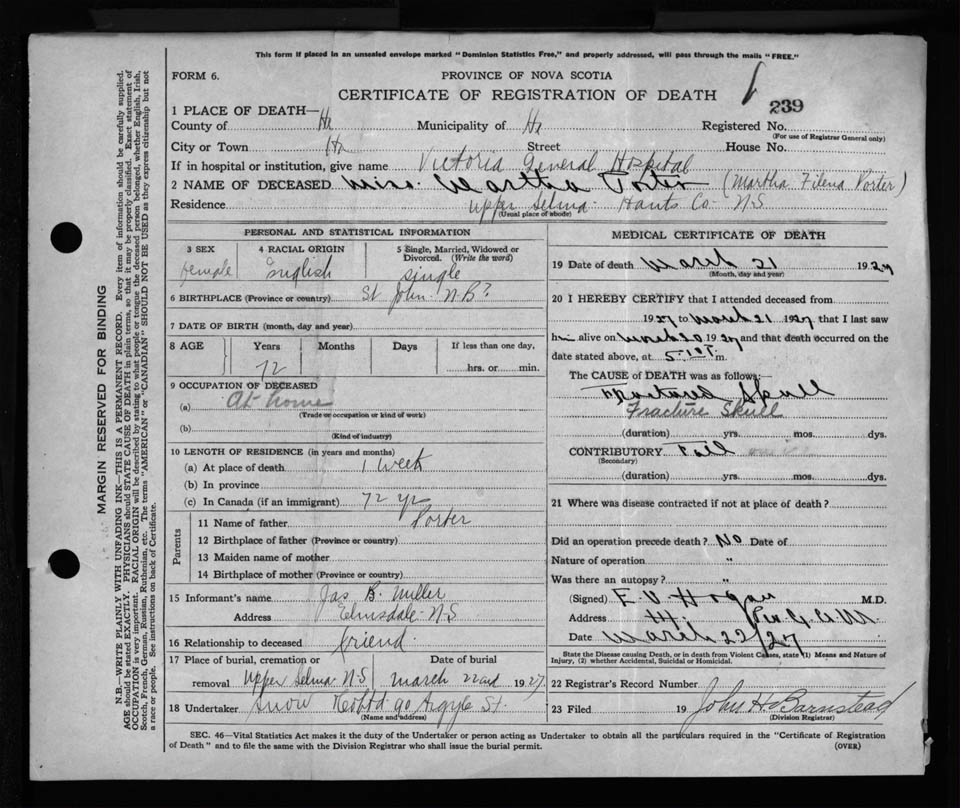 This form if placed in an unsealed envelope marked "Dominion Statistics Free," and properly addressed, will pass through the mails "FREE."
FORM 6.
PROVINCE OF NOVA SCOTIA
CERTIFICATE OF REGISTRATION OF DEATH
239
1 PLACE OF DEATH—
County of Hx Municipality of Hx Registered No.
(For use of Registrar General only)
City or Town Hx Street House No.
If in hospital or institution, give name Victoria General Hospital
2 NAME OF DECEASED Miss. Martha Porter (Martha Filena Porter)
Residence Upper Selma Hants Co N.S
(Usual place of abode)
PERSONAL AND STATISTICAL INFORMATION
3 SEX 4 RACIAL ORIGIN 5 Single, Married, Widowed or Divorced. (Write the word)
female English single
6 BIRTHPLACE (Province or country) St John N.B?
7 DATE OF BIRTH (month, day and year)
8 AGE Years Months Days If less than one day,
72 hrs. or min.
9 OCCUPATION OF DECEASED
(a) At home
(Trade or occupation or kind of work)
(b)
(Kind of industry)
10 LENGTH OF RESIDENCE (in years and months)
(a) At place of death 1 week
(b) In province
(c) In Canada (if an immigrant) 72 yr
Parents
11 Name of father Porter
12 Birthplace of father (Province or country)
13 Maiden name of mother
14 Birthplace of mother (Province or country)
15 Informant's name Jas B. Miller
Address Elmsdale N.S
16 Relationship to deceased friend
17 Place of burial, cremation or removal Upper Selma N.S Date of burial March 22nd 1927
18 Undertaker Snow 90 Argyle St.
(Name and address)
MEDICAL CERTIFICATE OF DEATH
19 Date of death March 21 1927
(Month, day and year)
20 I HEREBY CERTIFY that I attended deceased from
1927 to March 21 1927 that I last saw
h alive on March 20 1927 and that death occurred on the
date stated above, at m.
The CAUSE of DEATH was as follows:—
Fractured Skull
Fracture Skull
(duration) yrs. mos. dys.
CONTRIBUTORY Fall
(Secondary)
(duration) yrs. mos. dys.
21 Where was disease contracted if not at place of death?
Did an operation precede death? No Date of
Nature of operation "
Was there an autopsy? "
(Signed) E V Hogan M.D.
Address Hx
Date March 22/27
State the Disease causing Death, or in death from Violent Causes, state (1) Means and Nature of Injury, (2) whether Accidental, Suicidal or Homicidal.
22 Registrar's Record Number
23 Filed 19 John H Barnstead
(Division Registrar)
SEC. 46—Vital Statistics Act makes it the duty of the Undertaker or Person acting as Undertaker to obtain all the particulars required in the "Certificate of Registration
of Death" and to file the same with the Division Registrar who shall issue the burial permit. (OVER)
MARGIN RESERVED FOR BINDING
N.B.—WRITE PLAINLY WITH UNFADING INK—THIS IS A PERMANENT RECORD. Every item of information should be carefully supplied.
AGE should be stated EXACTLY. PHYSICIANS should STATE CAUSE OF DEATH in plain terms, so that it may be properly classified. Exact statement of
OCCUPATION is very important. RACIAL ORIGIN will be described by stating to what people or tongue the deceased person belonged, whether English, Irish,
Scotch, French, German, Russian, Ruthenian, etc. The terms "AMERICAN" or "CANADIAN" SHOULD NOT BE USED as they express citizenship but not
a race or people. See instructions on back of Certificate.